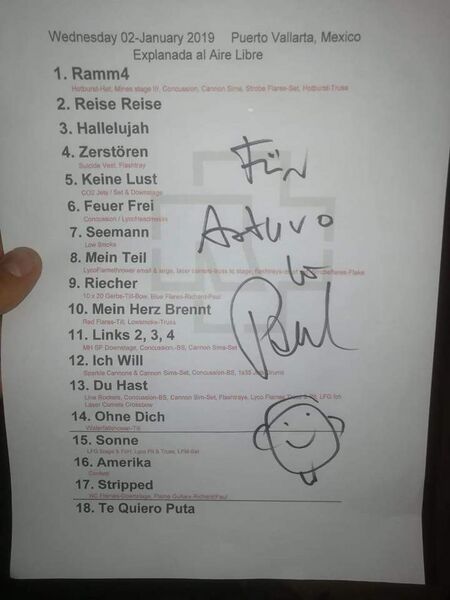 Wednesday 02-January 2019 Puerto Vallarta, Mexico
Explanada al Aire Libre
1. Ramm4
Hotburst-Hat, Mines stage III, Concussion, Cannon Sims, Strobe Flares-Set, Hotburst-Truss
2. Reise Reise
3. Hallelujah
4. Zerstören
Suicide Vest, Flashtray
5. Keine Lust
CO2 Jets / Set & Downstage
6. Feuer Frei
Concussion / Lycoheadmasks
7. Seemann
Low Smoke
8. Mein Teil
LycoFlamethrower small & large, laser comets-truss to stage,
9. Riecher
10 x 20 Gerbs-Till-Bow, Blue Flares-Richard-Paul
10. Mein Herz Brennt
Red Flares-Till, Lowsmoke-Truss
11. Links 2, 3, 4
MH SF Downstage, Concussion,-BS, Cannon Sims-Set
12. Ich Will
Sparkle Cannons & Cannon Sims-Set, Concussion-BS, 1x35 Drums
13. Du Hast
Line Rockets, Concussion-BS, Cannon Sim-Set, Flashtrays, Lyco Flames LFG foh
Laser Comets Crossbow
14. Ohne Dich
Waterfallshower-Till
15. Sonne
LFG Stage & FoH, Lyco Pit & Truss, LFM-Set
16. Amerika
Confetti
17. Stripped
NC Flames-Downstage, Flame Guitars Richard/Paul
18. Te Quiero Puta
Für
Arturo
Paul